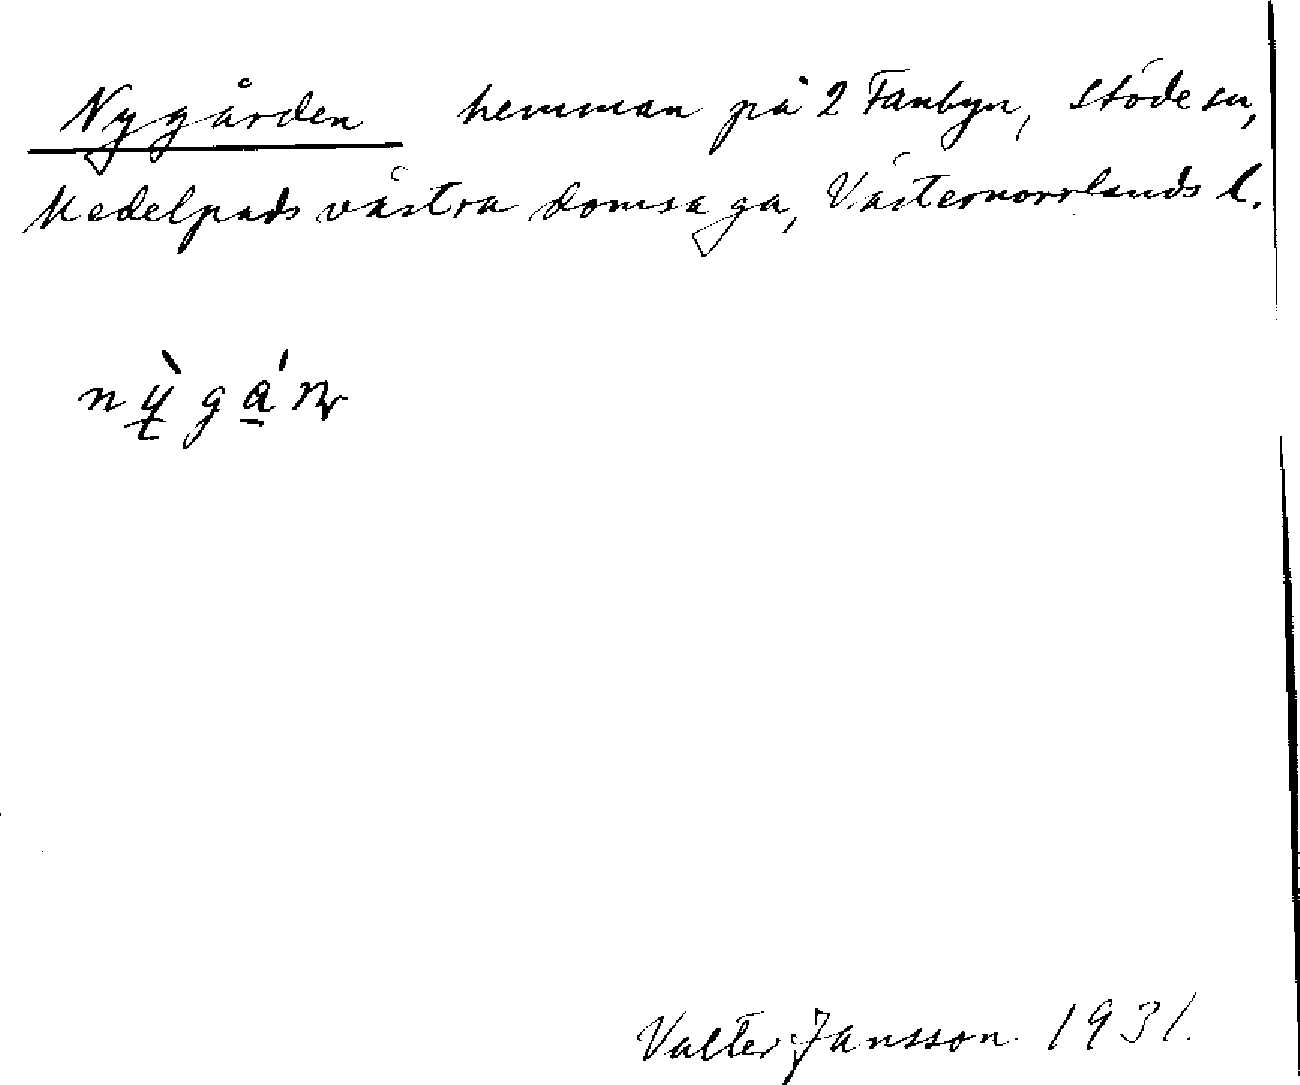 Nygården hemman på 2 Fanbyn, Stöde sn,
Medelpads västra domsaga, Västernorrlands l.
Valter Jansson 1931.